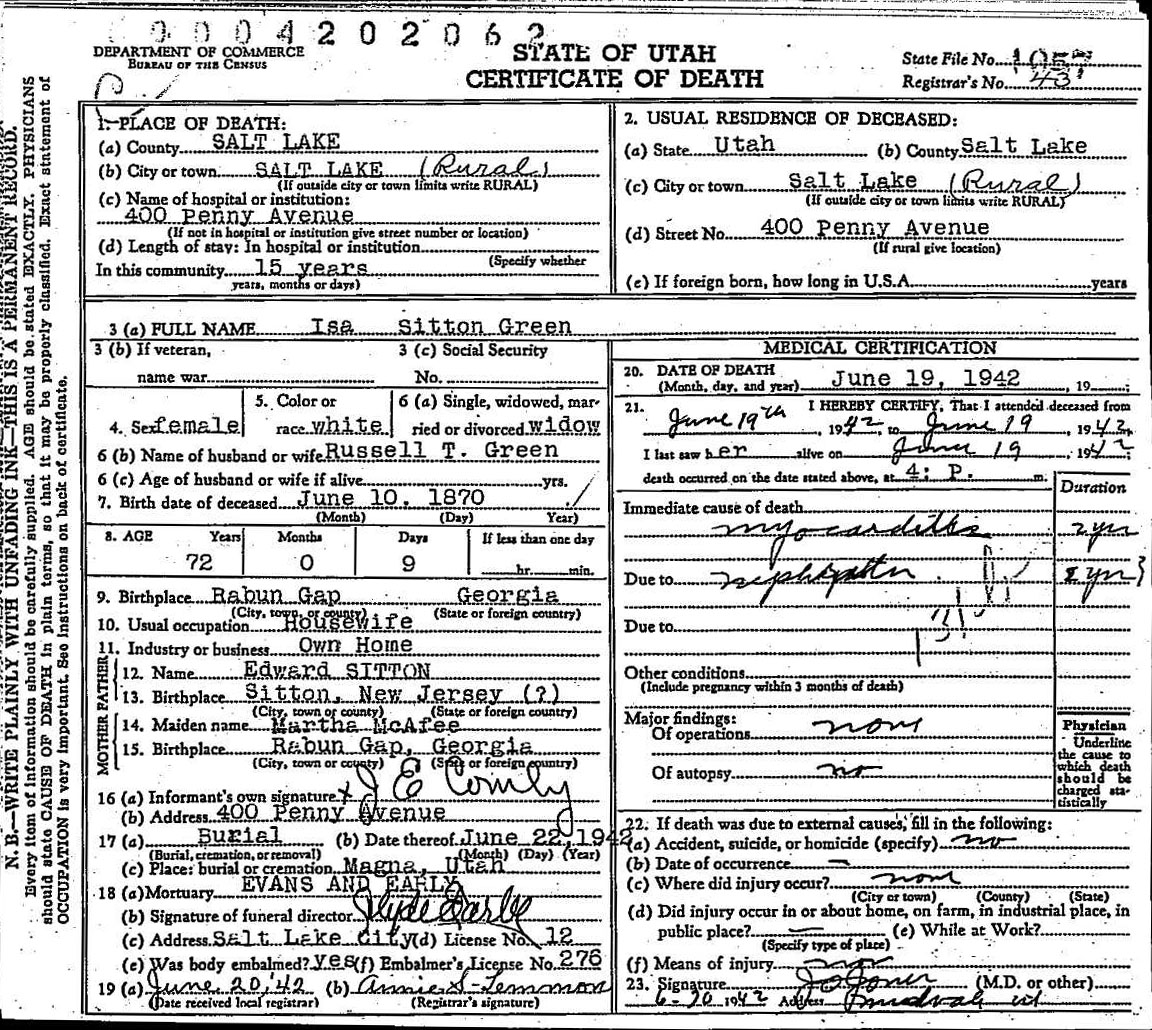 0004202062
DEPARTMENT OF COMMERCE
BUREAU OF THE CENSUS
STATE OF UTAH
CERTIFICATE OF DEATH
State File No. 1057
Registrar's No. 43
N.B.—WRITE PLAINLY WITH UNFADING INK—THIS IS A PERMANENT RECORD.
Every item of information should be carefully supplied. AGE should be stated EXACTLY. PHYSICIANS
should state CAUSE OF DEATH in plain terms, so that it may be properly classified. Exact statement of
OCCUPATION is very important. See Instructions on back of certificate.
1. PLACE OF DEATH:
(a) County SALT LAKE
(b) City or town SALT LAKE (Rural)
(If outside city or town limits write RURAL)
(c) Name of hospital or institution:
400 Penny Avenue
(If not in hospital or institution give street number or location)
(d) Length of stay: In hospital or institution
(Specify whether
In this community 15 years
years, months or days)
2. USUAL RESIDENCE OF DECEASED:
(a) State Utah (b) County Salt Lake
(c) City or town Salt Lake (Rural)
(If outside city or town limits write RURAL)
(d) Street No. 400 Penny Avenue
(If rural give location)
(e) If foreign born, how long in U.S.A. years
3 (a) FULL NAME Isa Sitton Green
3 (b) If veteran, 3 (c) Social Security
name war No.
4. Sex female
5. Color or
race white
6 (a) Single, widowed, mar-
ried or divorced widow
6 (b) Name of husband or wife Russell T. Green
6 (c) Age of husband or wife if alive yrs.
7. Birth date of deceased June 10, 1870
(Month) (Day) Year)
8. AGE Years Months Days If less than one day
72 0 9 hr. min.
9. Birthplace Rabun Gap Georgia
(City, town, or county) (State or foreign country)
10. Usual occupation Housewife
11. Industry or business Own Home
FATHER
12. Name Edward SITTON
13. Birthplace Sitton, New Jersey (?)
(City, town or county) (State or foreign country)
MOTHER
14. Maiden name Martha McAfee
15. Birthplace Rabun Gap, Georgia
(City, town or county) (State or foreign country)
16 (a) Informant's own signature x J E Comly
(b) Address 400 Penny Avenue
17 (a) Burial (b) Date thereof June 22, 1942
(Burial, cremation, or removal) (Month) (Day) (Year)
(c) Place: burial or cremation Magna, Utah
18 (a) Mortuary EVANS AND EARLY
(b) Signature of funeral director
(c) Address Salt Lake City (d) License No. 12
(e) Was body embalmed? yes (f) Embalmer's License No. 276
19 (a) June 20, '42 (b) Annie S. Lemmon
(Date received local registrar) (Registrar's signature)
MEDICAL CERTIFICATION
20. DATE OF DEATH
(Month, day, and year) June 19, 1942, 19
21. I HEREBY CERTIFY, That I attended deceased from
June 19th, 1942, to June 19 1942.
I last saw her alive on June 19 1942
death occurred on the date stated above, at 4: P. m.
Duration
Immediate cause of death
myocarditis 2 yrs
Due to 2 yrs
Due to
Other conditions
(Include pregnancy within 3 months of death)
Major findings:
Of operations none
Of autopsy no
Physician
Underline
the cause to
which death
should be
charged sta-
tistically
22. If death was due to external causes, fill in the following:
(a) Accident, suicide, or homicide (specify) no
(b) Date of occurrence —
(c) Where did injury occur? none
(City or town) (County) (State)
(d) Did injury occur in or about home, on farm, in industrial place, in
public place? — (e) While at Work?
(Specify type of place)
(f) Means of injury
23. Signature J O Jones (M.D. or other)
6-20 1942 Address Midvale Ut